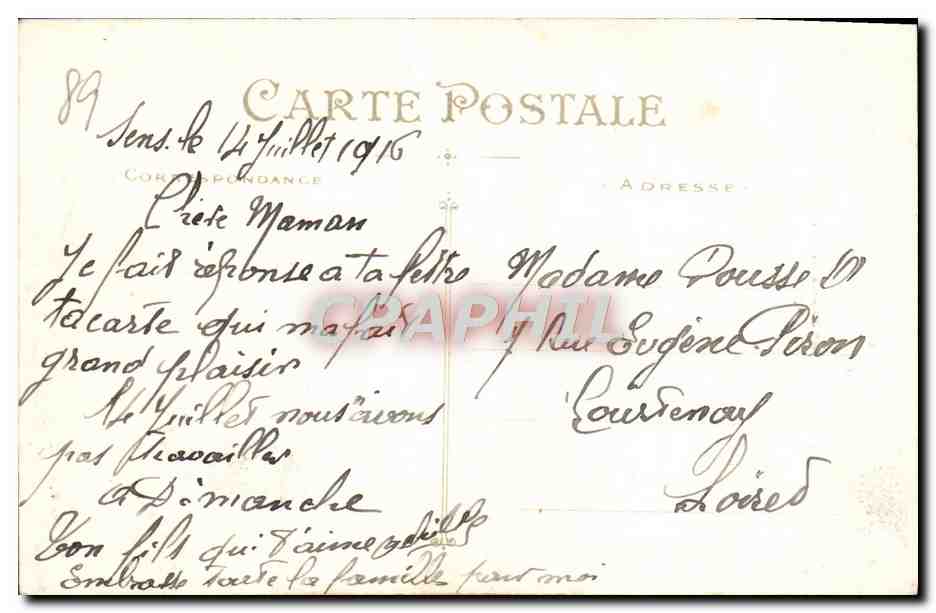 89
CARTE POSTALE
Sens. le 14 Juillet 1916
CORRESPONDANCE
Chere Maman
Je fait réponse a ta lettre
ta carte qui ma fait
grand plaisir
14 Juillet nous avons
pas travailler
a Dimanche
Ton fils qui t'aime
Embrasse toute la famille pour moi
ADRESSE
Madame Pousse
7 Rue Eugène Péron
Courtenay
Loiret
CPAPHIL